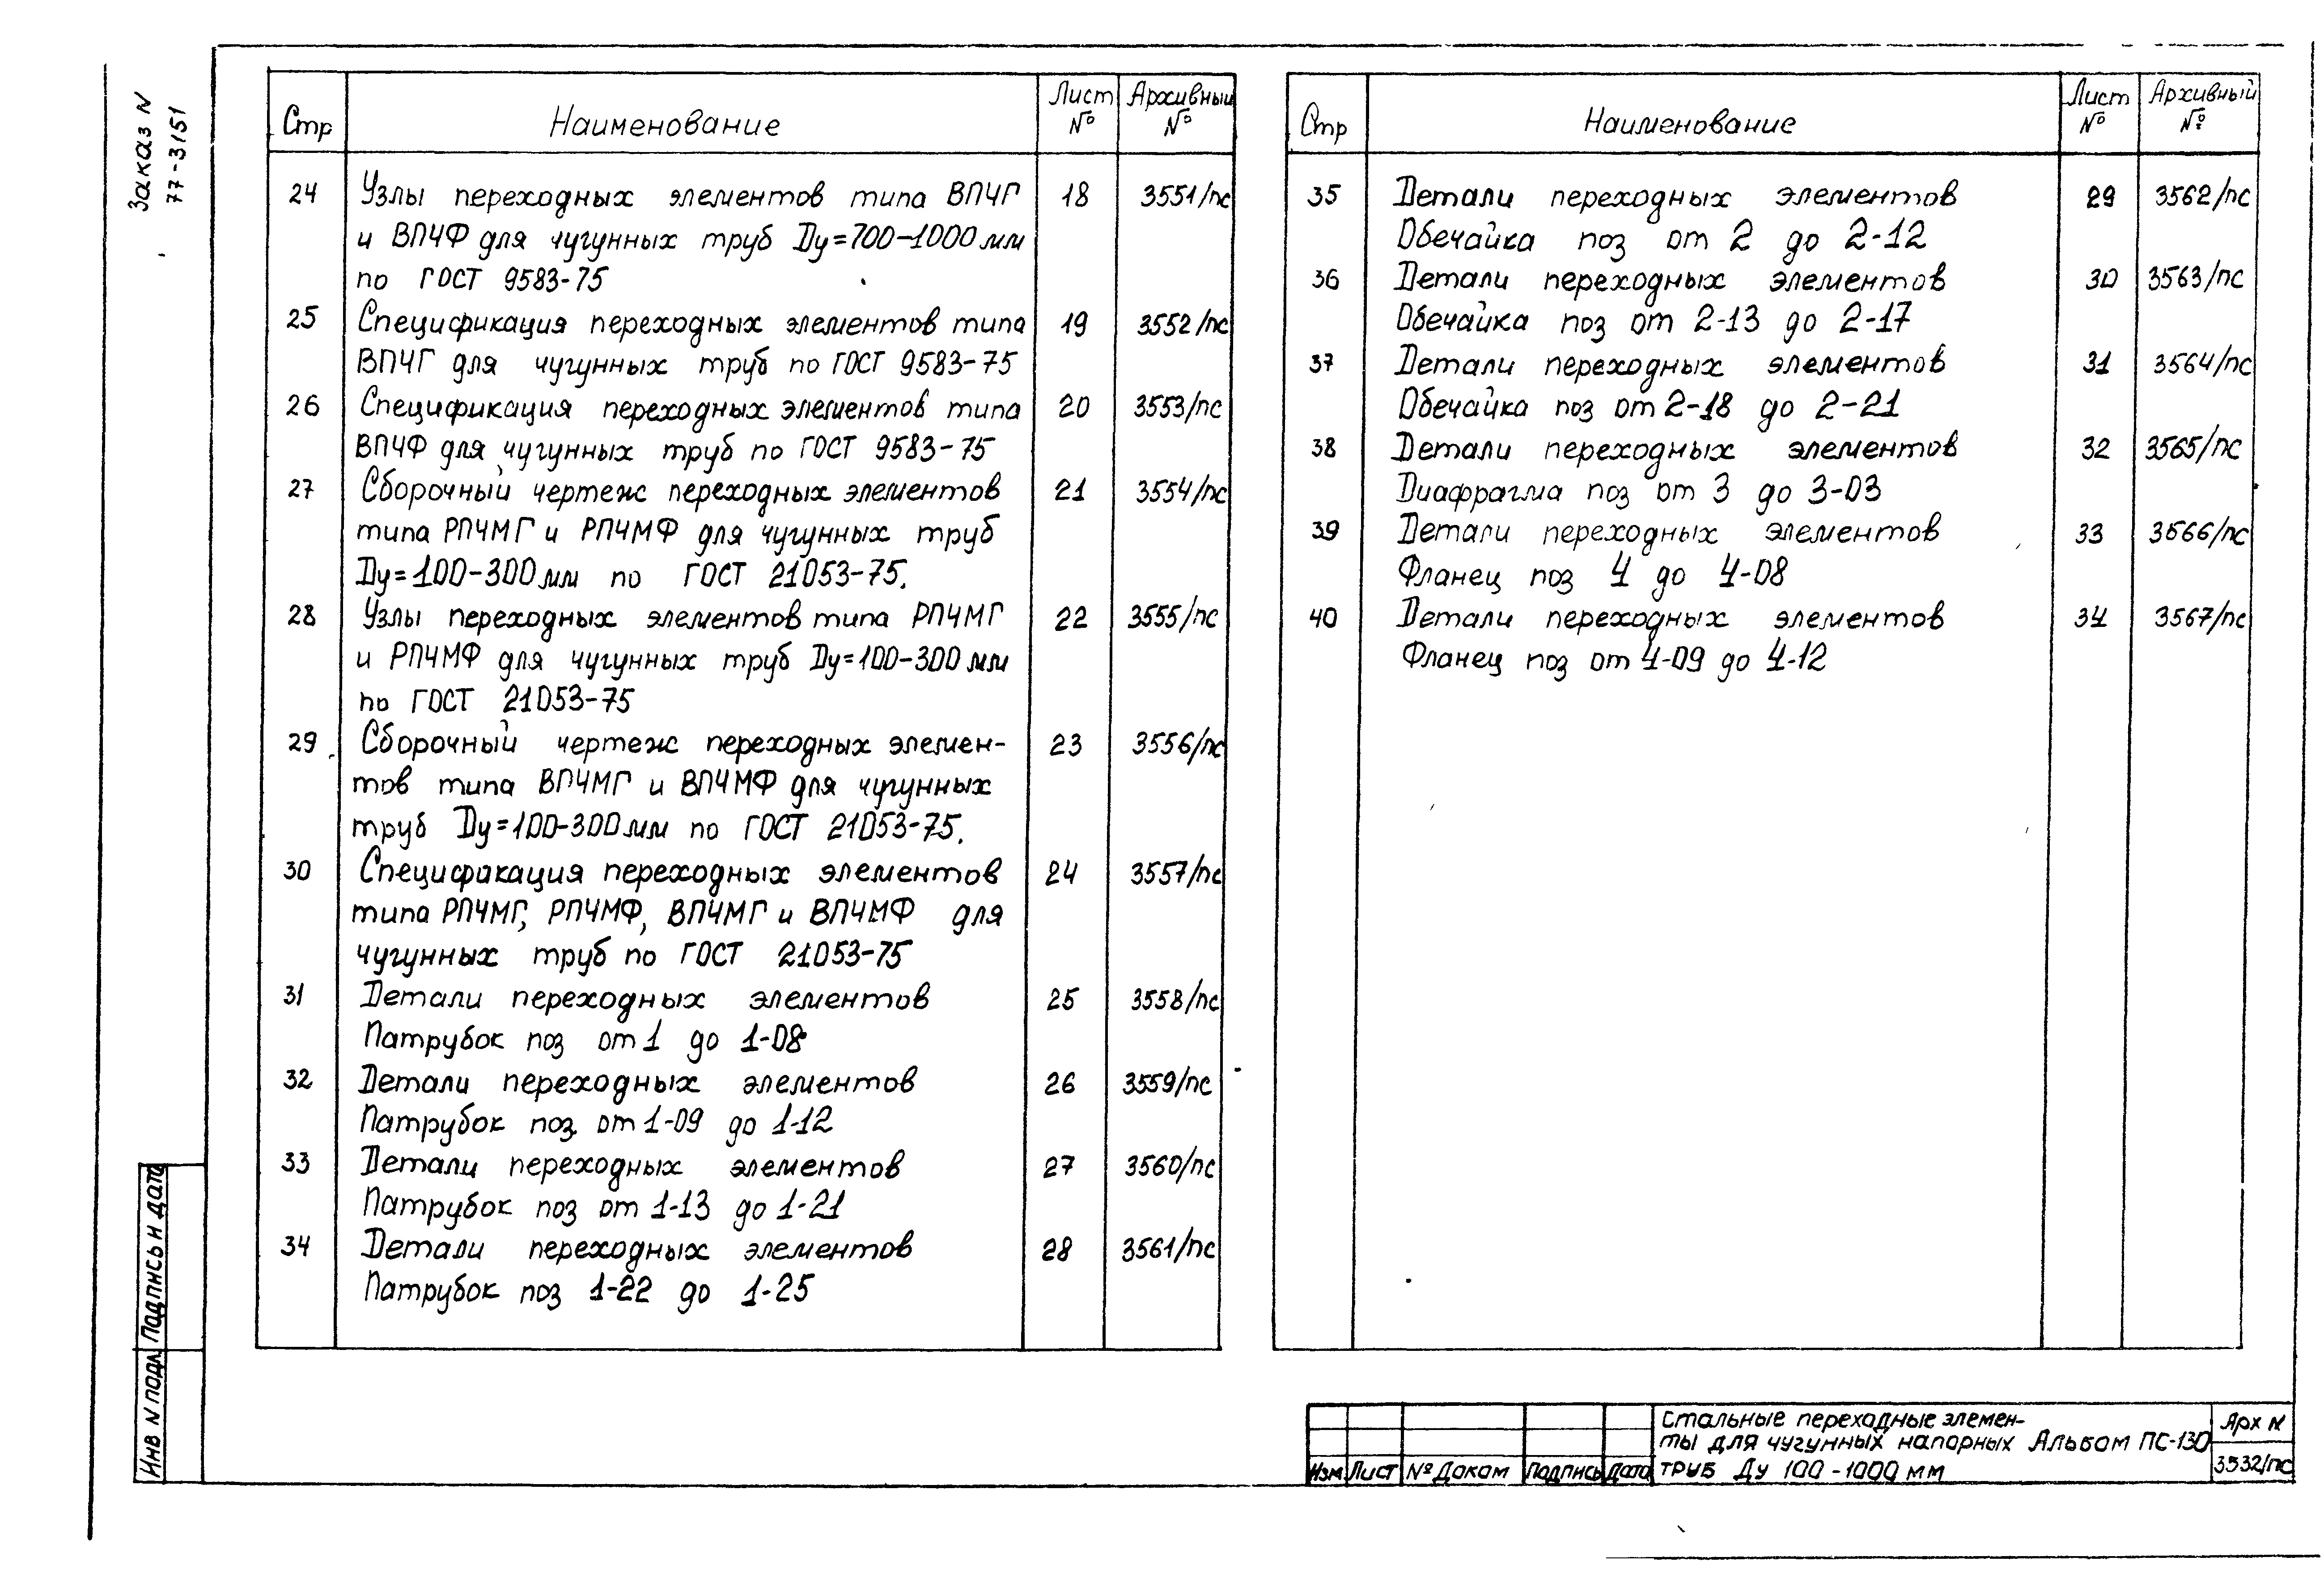 Заказ N
77-3151
Стр Наименование Лист № Архивный №
24 Узлы переходных элементов типа ВПЧГ 18 3551/пс
и ВПЧФ для чугунных труб Ду=700-1000 мм
по ГОСТ 9583-75
25 Спецификация переходных элементов типа 19 3552/пс
ВПЧГ для чугунных труб по ГОСТ 9583-75
26 Спецификация переходных элементов типа 20 3553/пс
ВПЧФ для чугунных труб по ГОСТ 9583-75
27 Сборочный чертеж переходных элементов 21 3554/пс
типа РПЧМГ и РПЧМФ для чугунных труб
Ду=100-300 мм по ГОСТ 21053-75.
28 Узлы переходных элементов типа РПЧМГ 22 3555/пс
и РПЧМФ для чугунных труб Ду=100-300 мм
по ГОСТ 21053-75
29 Сборочный чертеж переходных элемен- 23 3556/пс
тов типа ВПЧМГ и ВПЧМФ для чугунных
труб Ду=100-300 мм по ГОСТ 21053-75.
30 Спецификация переходных элементов 24 3557/пс
типа РПЧМГ, РПЧМФ, ВПЧМГ и ВПЧМФ для
чугунных труб по ГОСТ 21053-75
31 Детали переходных элементов 25 3558/пс
Патрубок поз от 1 до 1-08
32 Детали переходных элементов 26 3559/пс
Патрубок поз. от 1-09 до 1-12
33 Детали переходных элементов 27 3560/пс
Патрубок поз от 1-13 до 1-21
34 Детали переходных элементов 28 3561/пс
Патрубок поз 1-22 до 1-25
Стр Наименование Лист № Архивный №
35 Детали переходных элементов 29 3562/пс
Обечайка поз от 2 до 2-12
36 Детали переходных элементов 30 3563/пс
Обечайка поз от 2-13 до 2-17
37 Детали переходных элементов 31 3564/пс
Обечайка поз от 2-18 до 2-21
38 Детали переходных элементов 32 3565/пс
Диафрагма поз от 3 до 3-03
39 Детали переходных элементов 33 3566/пс
Фланец поз 4 до 4-08
40 Детали переходных элементов 34 3567/пс
Фланец поз от 4-09 до 4-12
Инв N подл Подпись и дата
Изм Лист № Доком Подпись Дата
Стальные переходные элемен-
ты для чугунных напорных
труб Ду 100-1000 мм
Альбом ПС-130
Арх N
3532/пс